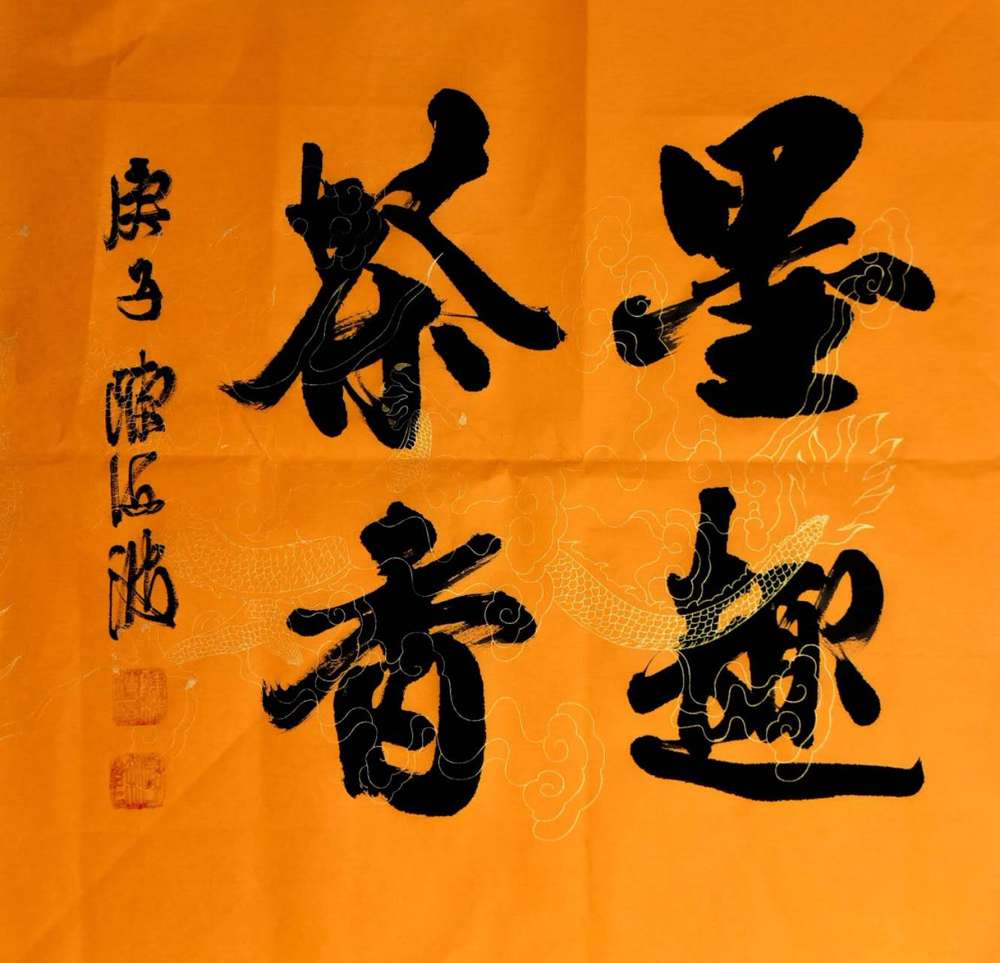 墨趣
茶香
庚子